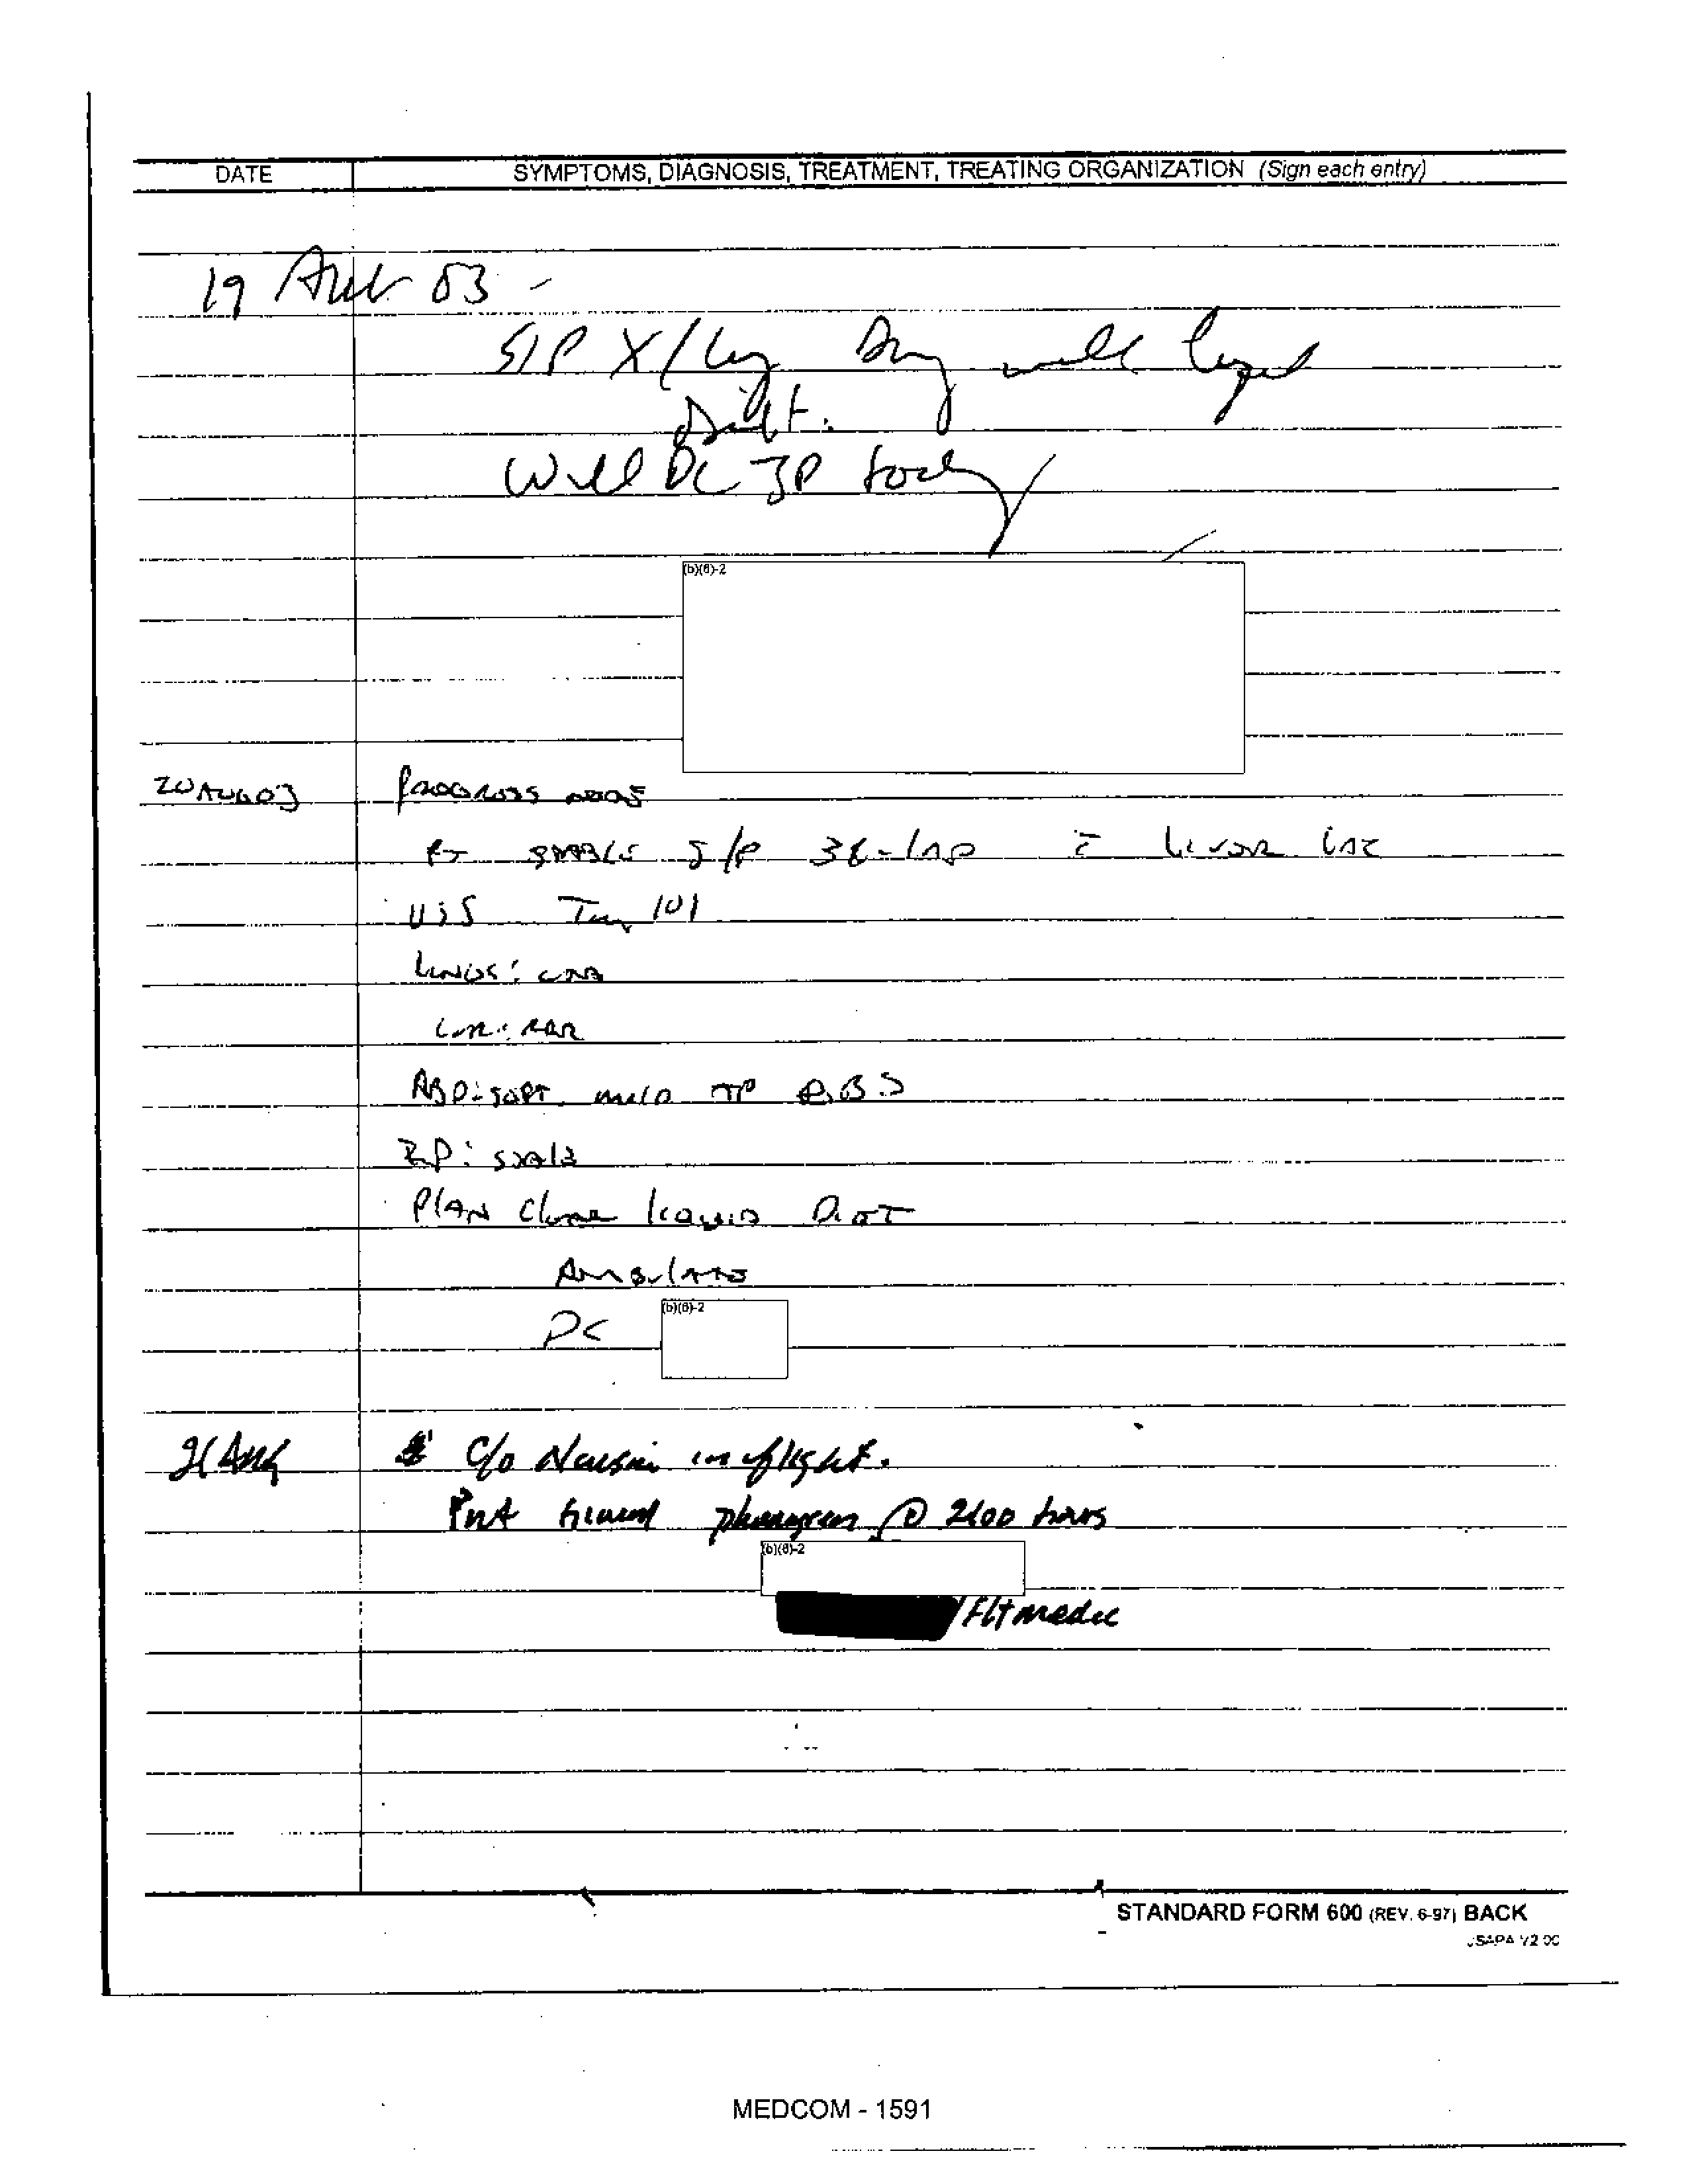 DATE SYMPTOMS, DIAGNOSIS, TREATMENT, TREATING ORGANIZATION (Sign each entry)
19 AUG 03 -
S/P X/Lap Doing well
Diet.
Will DC JP today
(b)(6)-2
20AUG03 PROGRESS NOTE
PT STABLE S/P LAP c̄ LIVER LAC
VSS 101
LUNGS: CTA
COR: RRR
ABD: SOFT, MILD TTP
JP:
PLAN Clear LIQUID DIET
AMBULATE
DC
(b)(6)-2
21 Aug C/o Nausea in flight.
Pnt phenergan @ 2100 hours
(b)(6)-2
/Flt medic
STANDARD FORM 600 (REV. 6-97) BACK
USAPA V2.00
MEDCOM - 1591